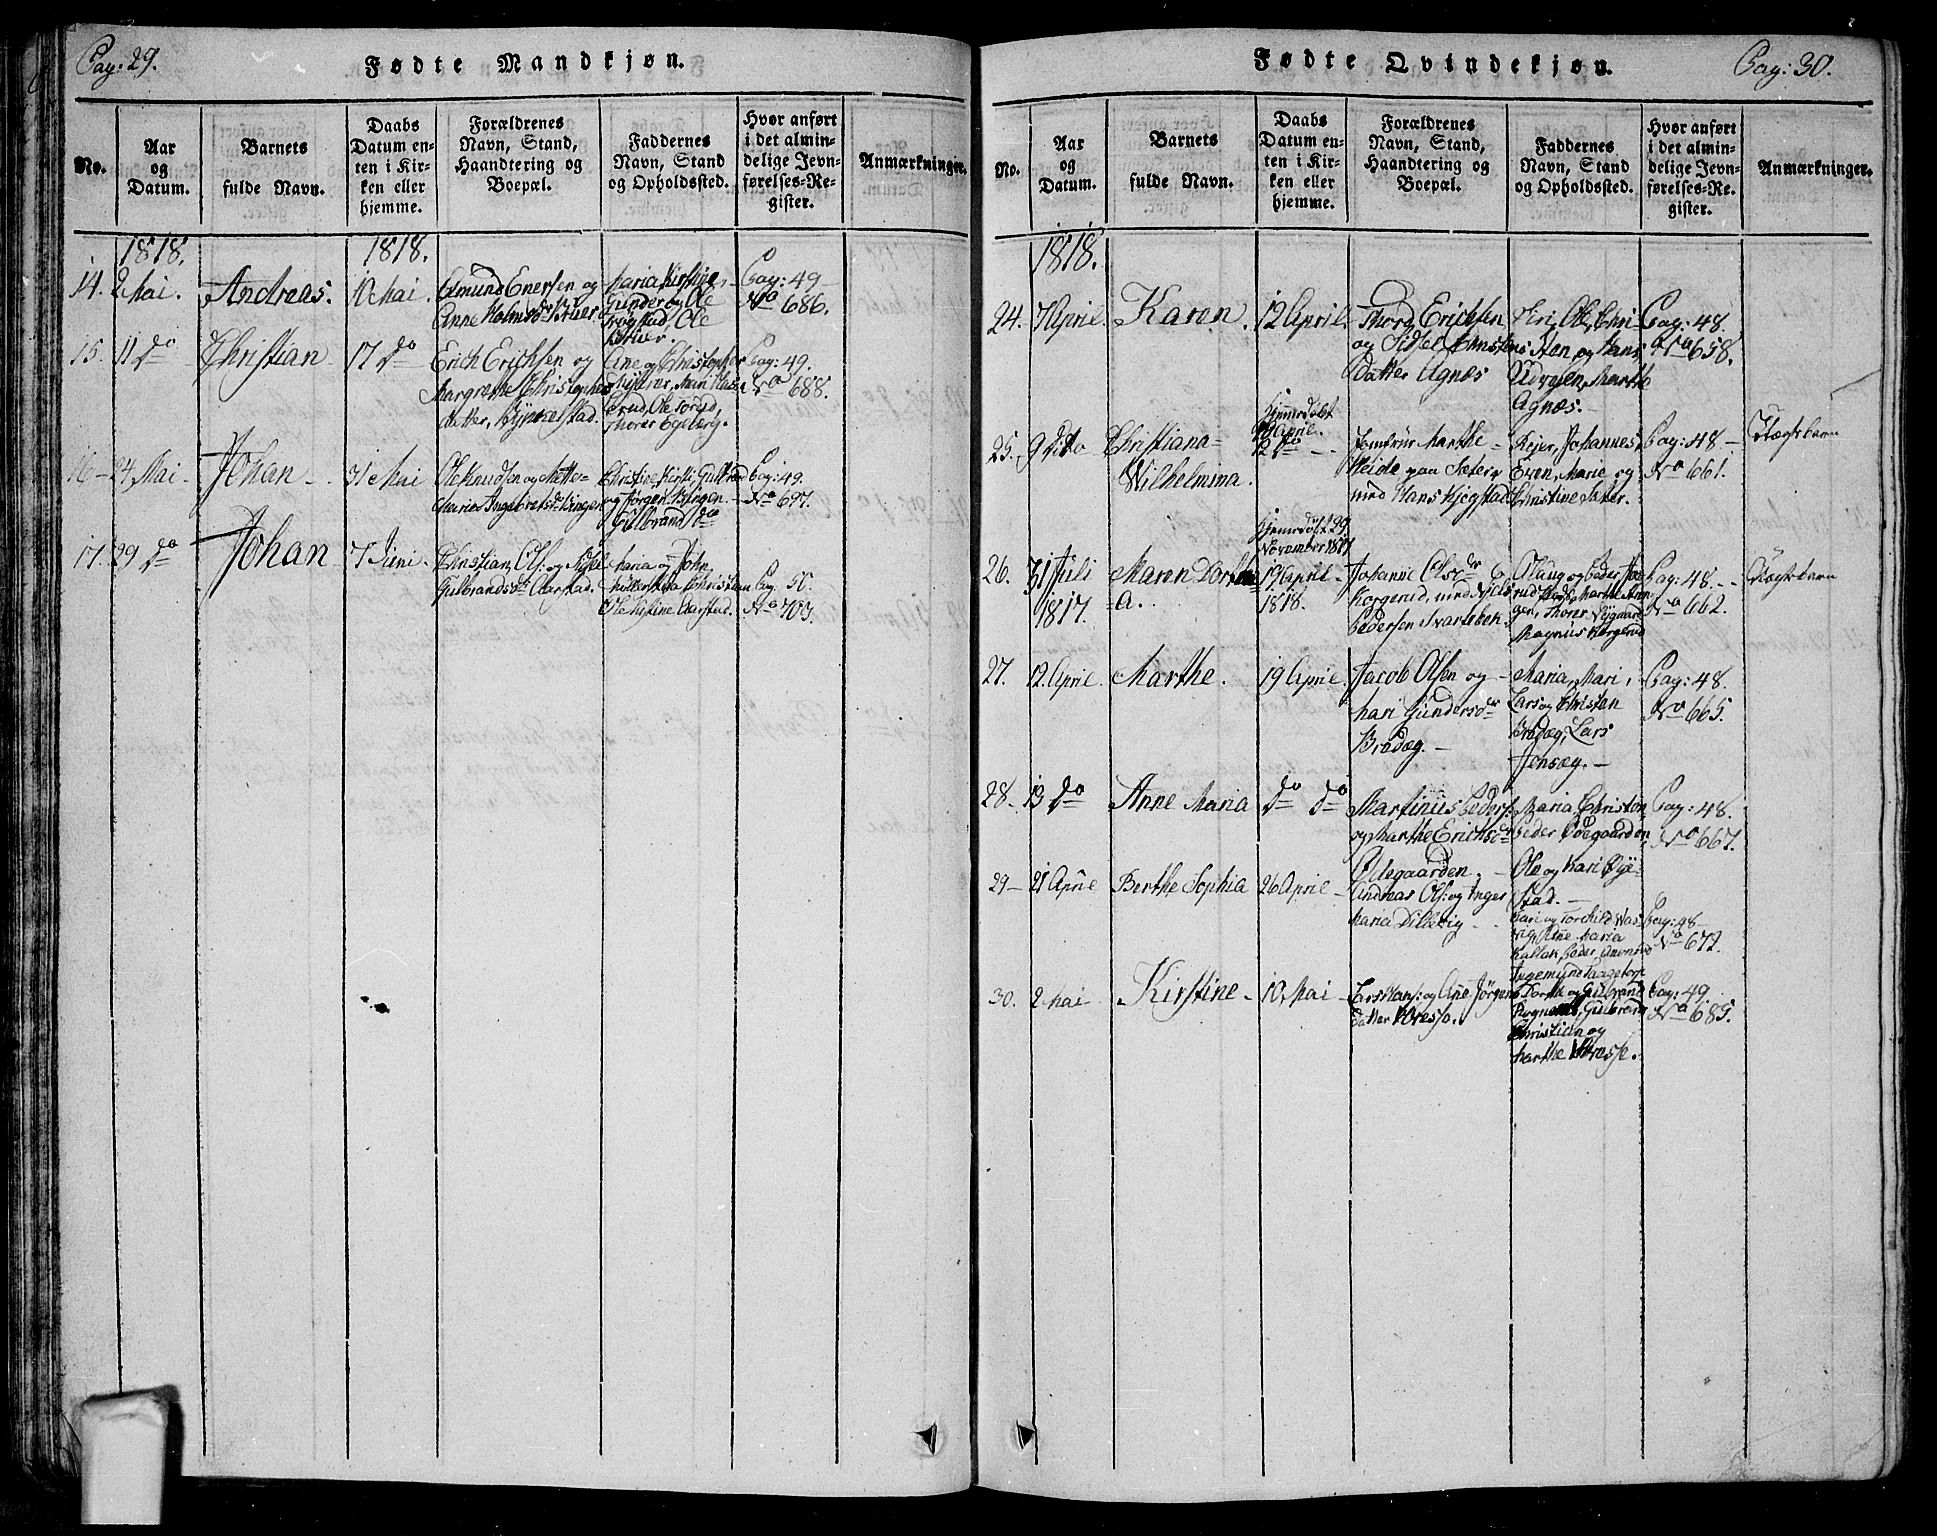 Pag: 29.
Fødte Mandkjøn.
No.
Aar
og
Datum.
Barnets
fulde Navn.
Daabs
Datum en-
ten i Kir-
ken eller
hjemme.
Forældrenes
Navn, Stand,
Haandtering og
Boepæl.
Faddernes
Navn, Stand
og Opholdssted.
Hvor anført
i det almin-
delige Jevn-
førelses-Re-
gister.
Anmærkninger.
1818.
1818.
14.
2 Mai.
Andreas.
10 Mai.
Amund Enersen og
Anne
Maria Kirstine,
Gunder og Ole
Trøgstad, Ole
Pag: 49
No 686.
15.
11 do
Christian
17 do
Erich Erichsen og
Margrethe Christophers
datter,
Ane og Christopher
Mari
Ole
Thorer Egeberg.
Pag: 49.
No 688.
16
24 Mai
Johan
31 Mai
Ole Knudsen og Mette
Maria Ingebretsdr Bingen
Christine, Kirsti, Gulbrand
og Jørgen Bingen.
Gulbrand do
Pag: 49.
No 697.
17.
29 do
Johan
7 Juni
Christian Ols: og
Gulbrandsdr Aarstad.
Maria og John
Christian
Ole Kistine Aarstad.
Pag. 50.
No 703.
Pag: 30.
Fødte Qvindekjøn.
No.
Aar
og
Datum.
Barnets
fulde Navn.
Daabs
Datum en-
ten i Kir-
ken eller
hjemme.
Forældrenes
Navn, Stand,
Haandtering og
Boepæl.
Faddernes
Navn, Stand
og Opholdssted.
Hvor anført
i det almin-
delige Jevn-
førelses-Re-
gister.
Anmærkninger.
1818.
24.
7 April.
Karen.
12 April.
Thord Erichsen
og Sidsel Christens
datter Agnæs
Ole, Chri-
sten og Hans
Marthe
Agnæs.
Pag: 48.
No 658.
25.
9 Dito
Christiana
Wilhelmina.
Hjemedøbt
April.
12 do
Jomfrue Marthe
Heide paa Sæter
med Hans Kjegstad
Johannes,
Even, Marie og
Christine Sæter.
Pag: 48
No 661.
Uægte barn
26.
31 Juli
1817.
Maren Dorthe
a.
Hjemedøbt 29
November 1817
19 April
1818.
Johanne Olsdr
Korgerud, med Nils
Pedersen Svartebek.
Olaug og Peder
Thorer Nygaard
Magnus Korgerud
Pag: 48.
No 662.
Uægte barn
27.
12 April.
Marthe.
19 April.
Jacob Olsen og
Mari Gundersdr
Bradæg.
Maria, Mari,
Lars og Christen
Bradæg, Lars
Jonsæg.
Pag: 48.
No 665.
28.
13 do
Anne Maria
do do
Martinus Peders:
og Marthe Erichsdr
Ødegaarden.
Maria, Christen,
Peder Ødegaarden,
Ole og Kari Øye-
stad.
Pag: 48.
No 667.
29
21 April
Berthe Sophia
26 April
Andreas Ols: og Inger
Maria Dillevig
Kari og Torchild
Ane Maria
Peder
Pag: 48
No 677.
30.
2 Mai
Kirstine
10 Mai
Lars Hans: og Ane Jørgens
datter
Dorthe og Gulbrand
Gulbrand
Christian og
Marthe
Pag: 49.
No 685.